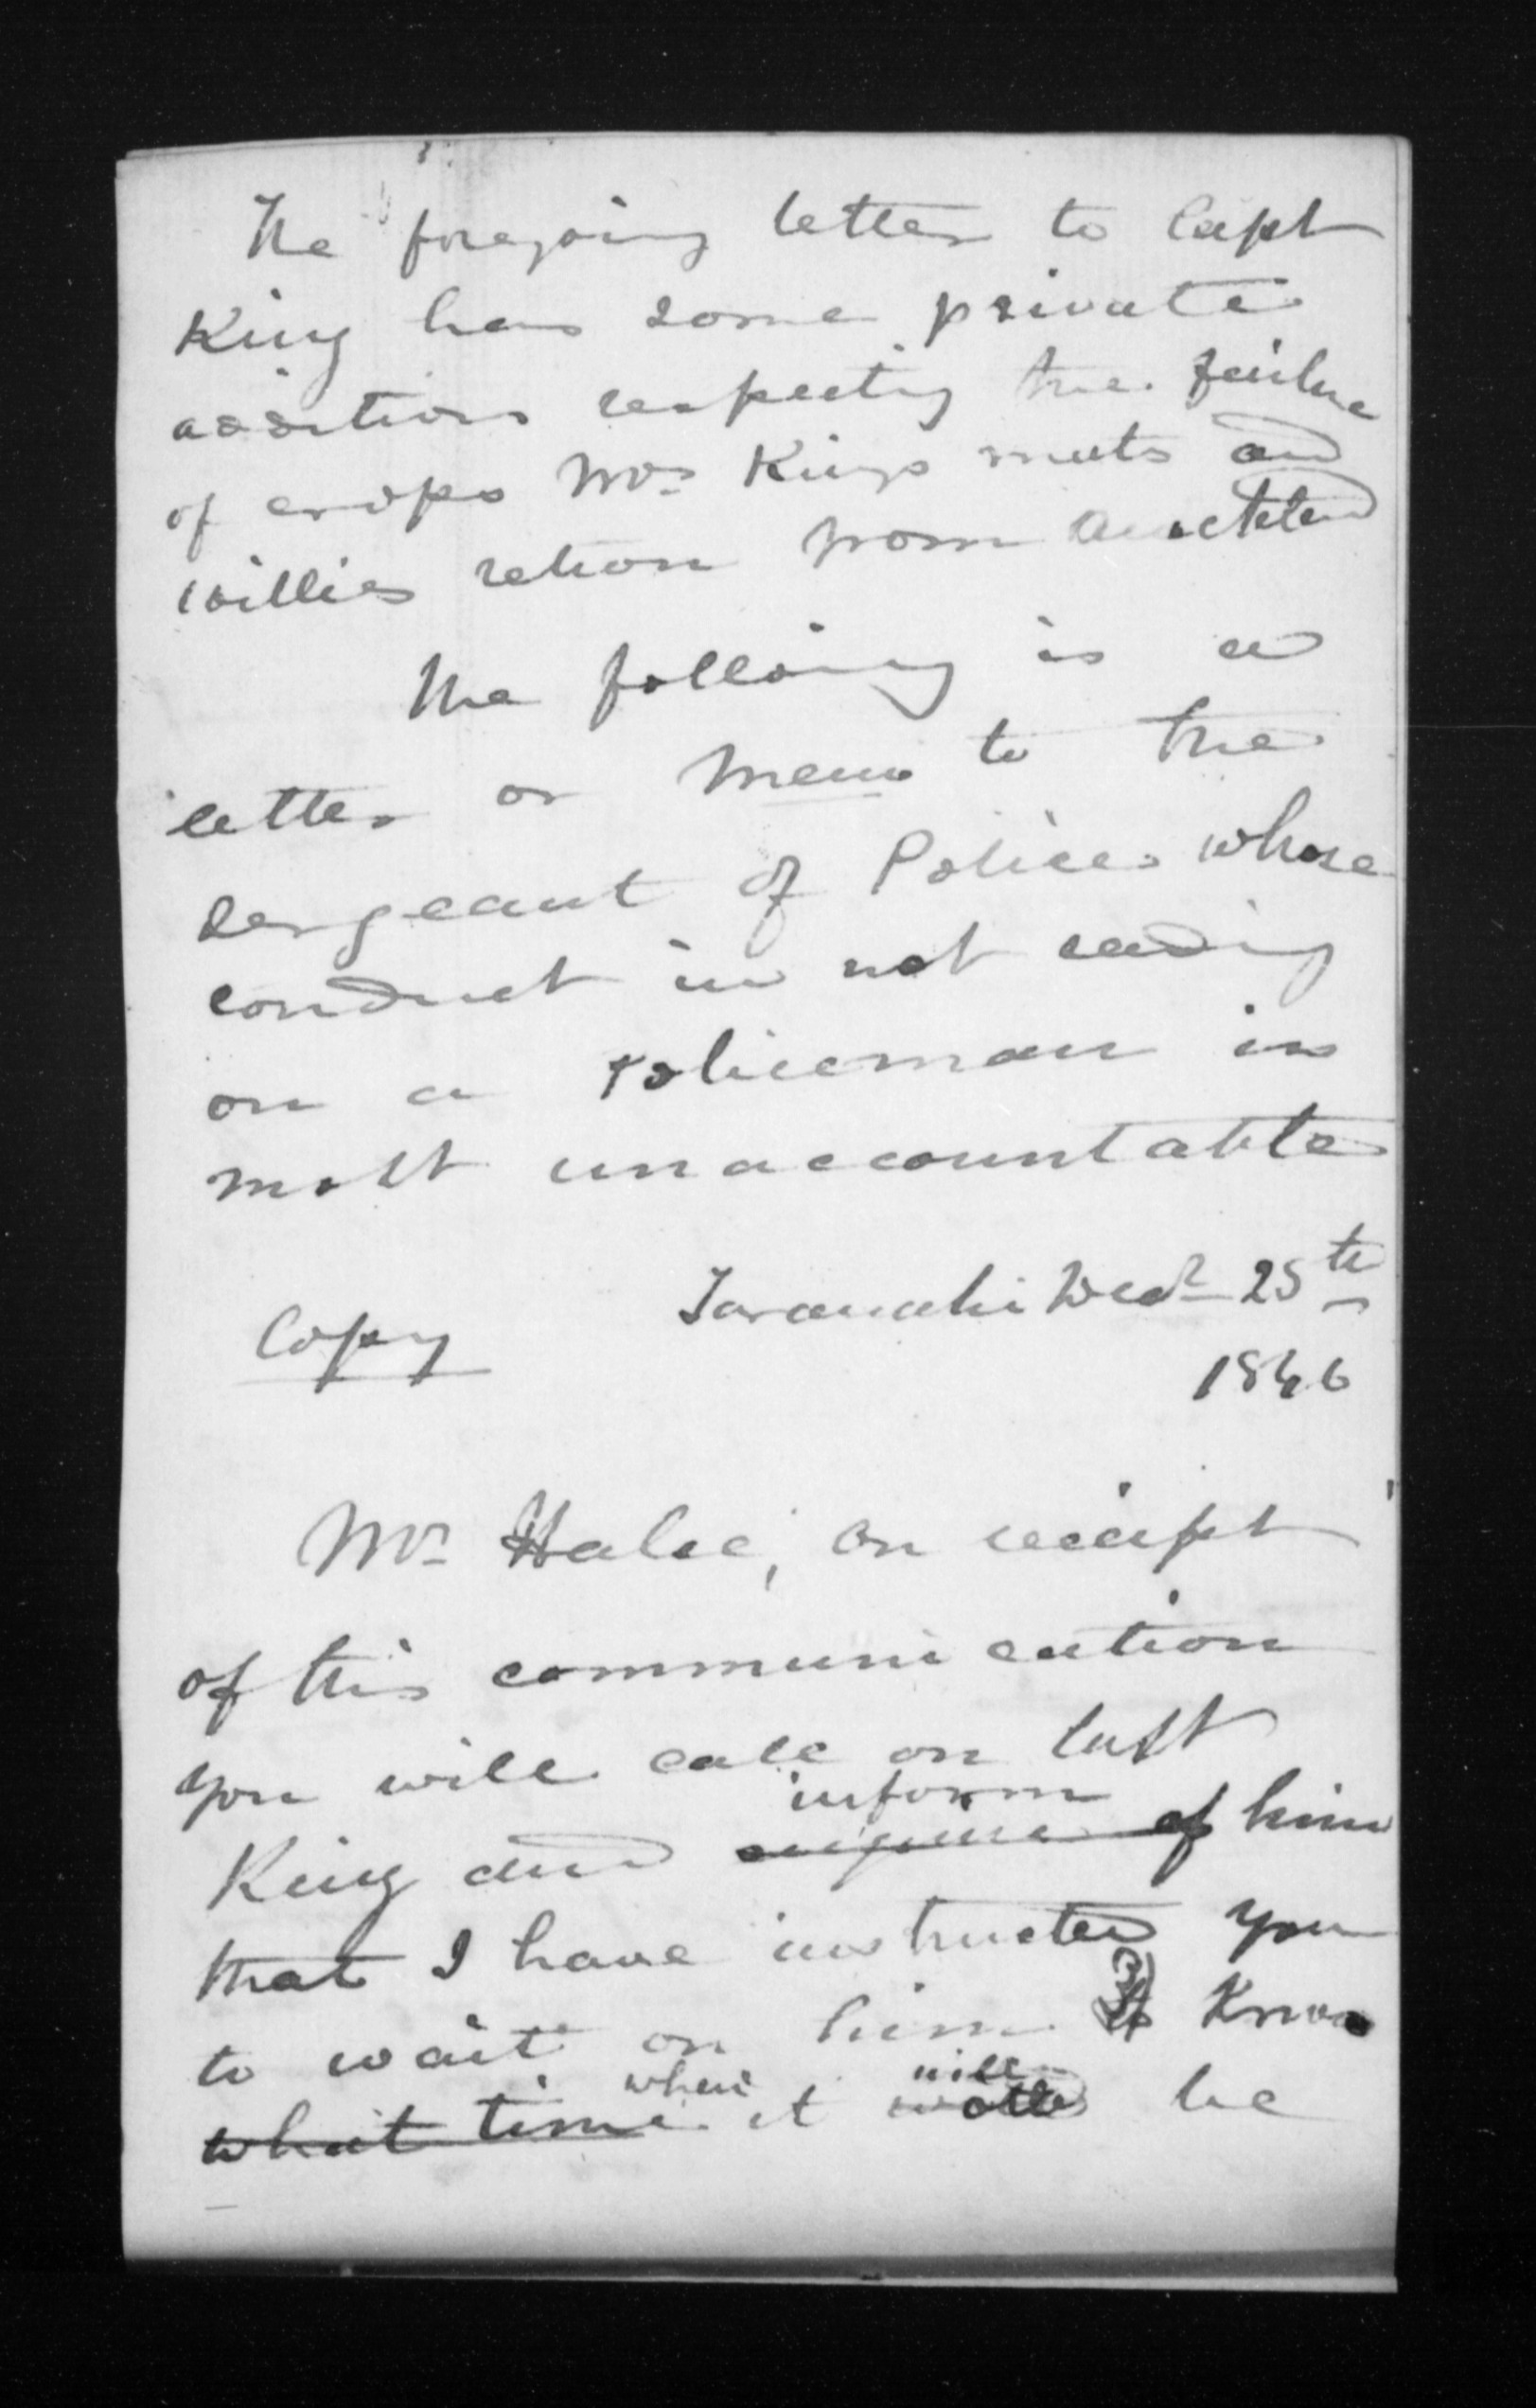 The foregoing letter to Capt
King has some private
additions respecting the failure
of crops Mrs Kings meets and
Willies return from Auckland
The following is a
letter or memo to the
sergeant of Police whose
conduct in not sending
on a Policeman is
most unaccountable
Copy Taranaki Wedn 25th
1846
Mr Halse, on receipt
of this communication
you will call on Capt
inform
King and enquire of him
that I have instructed you
to wait on him to Know
when will
what time it would be